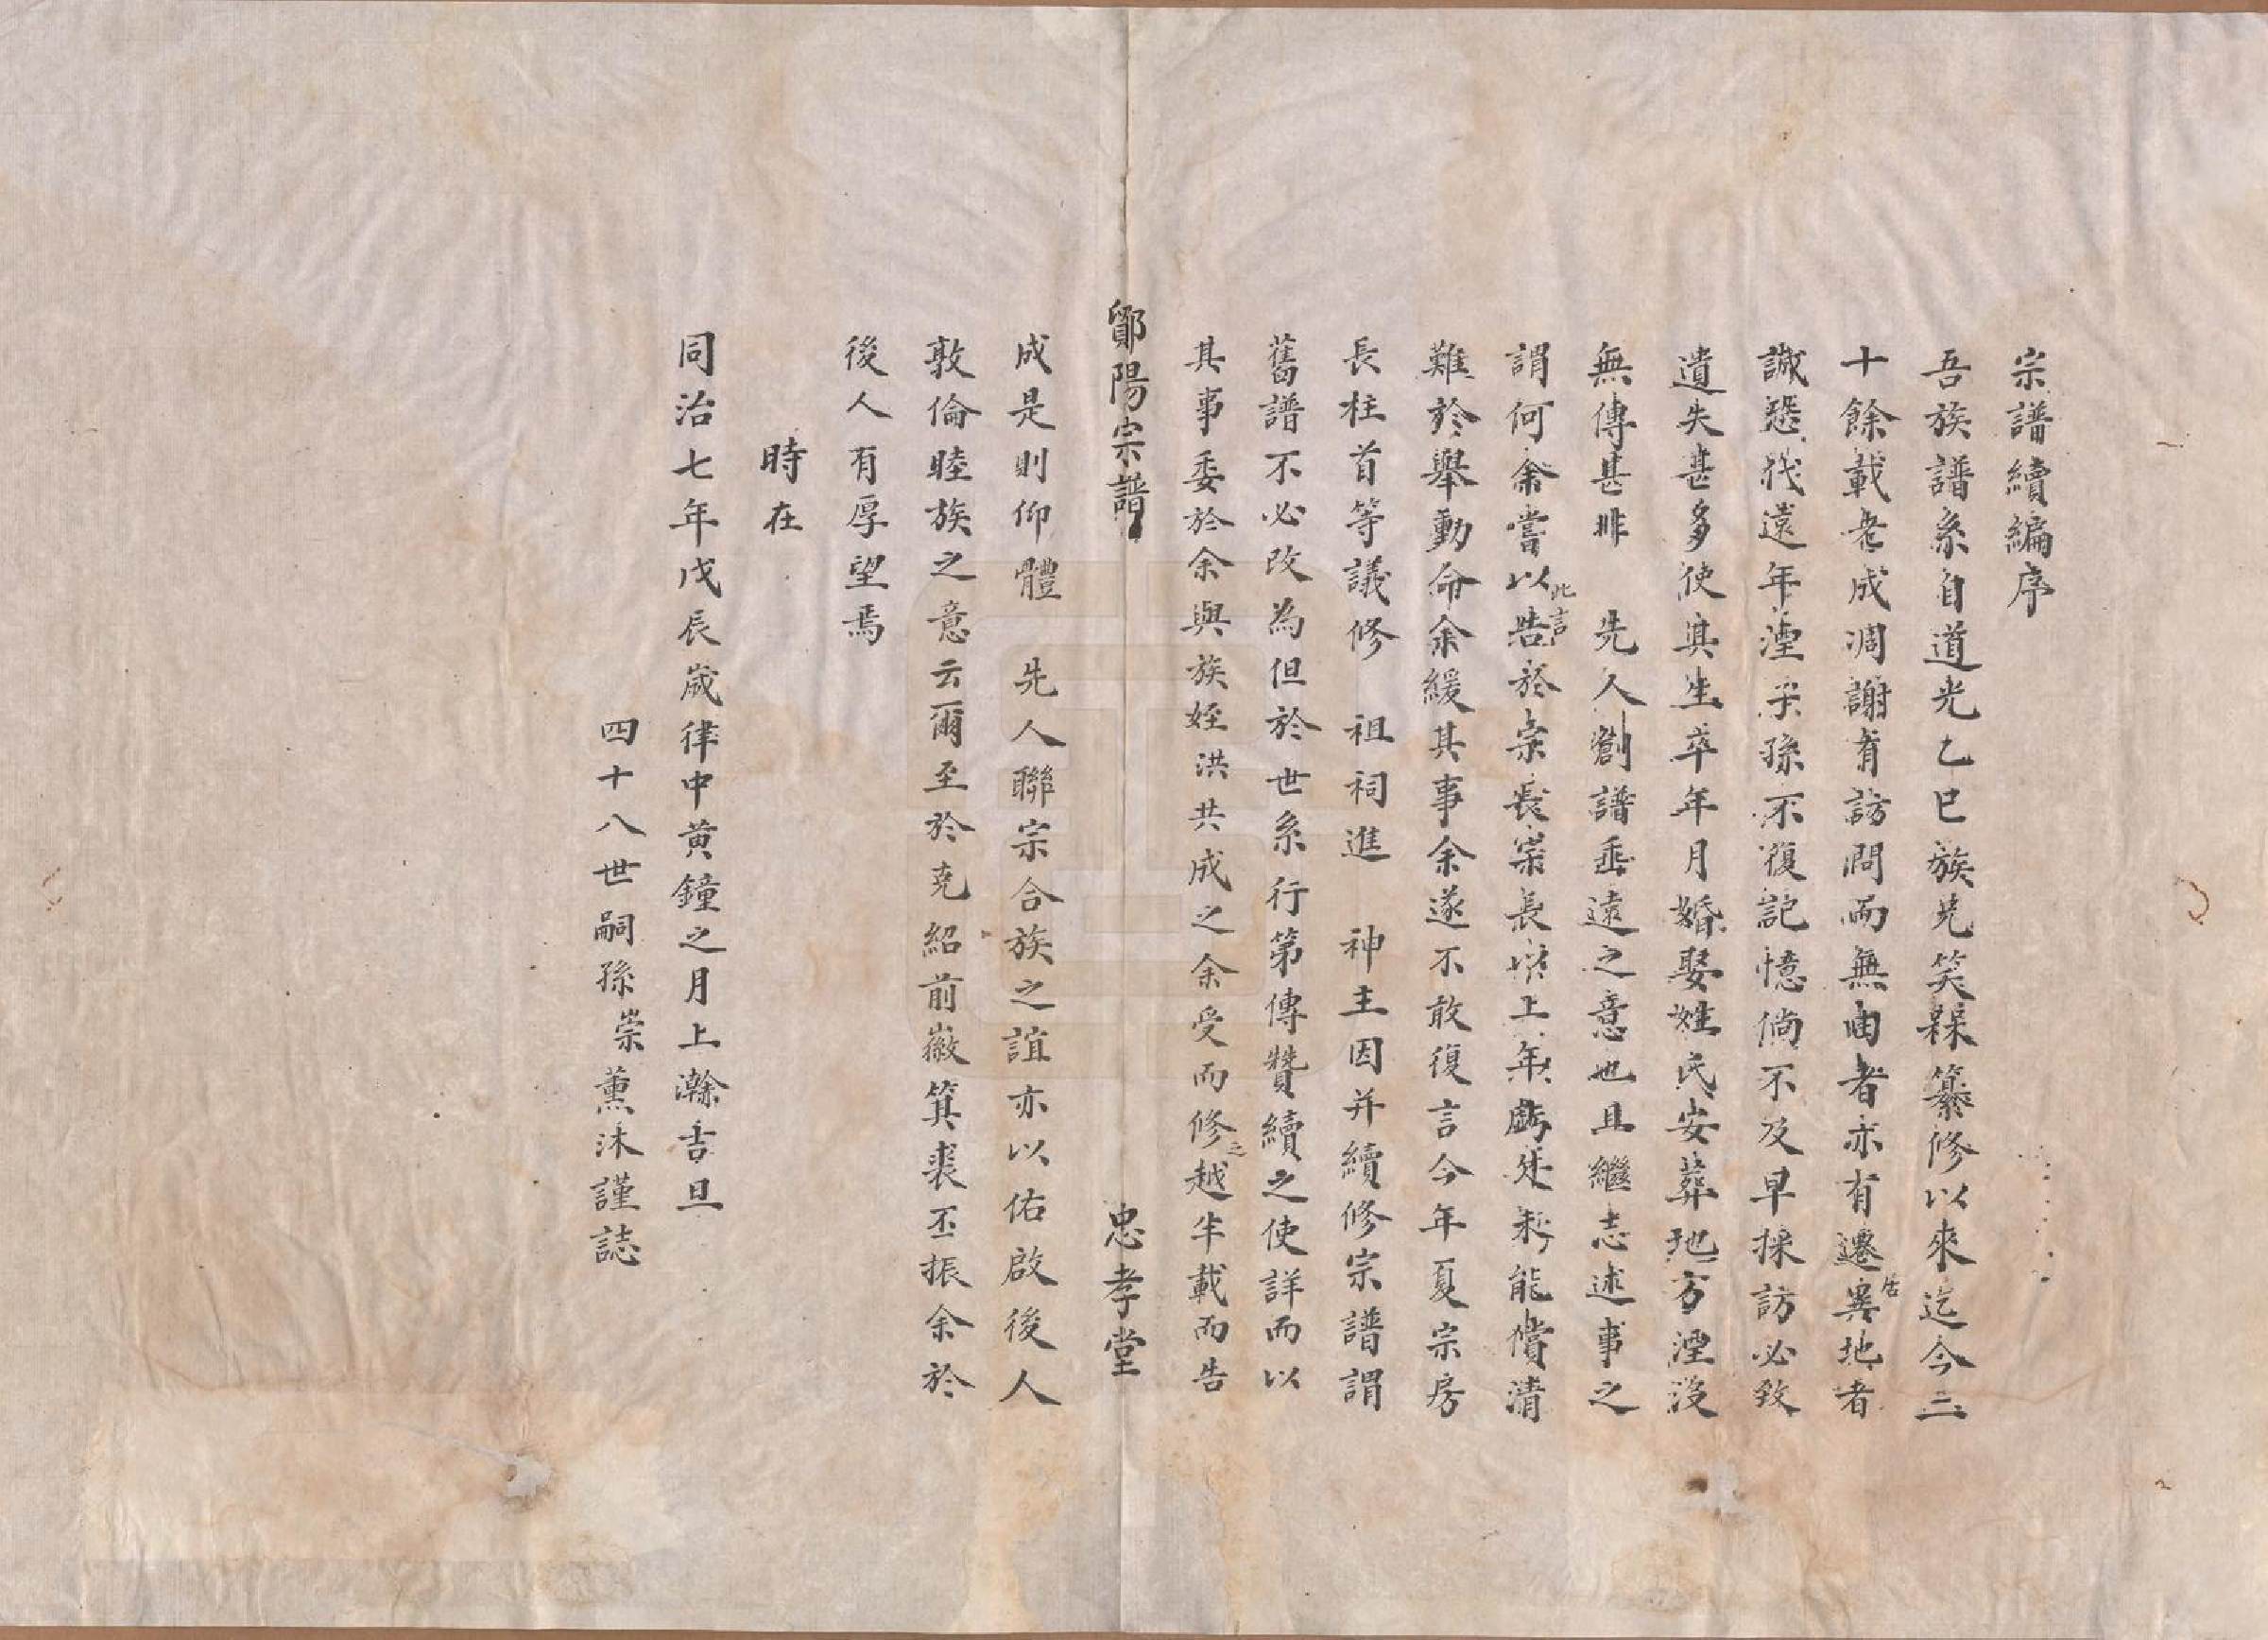 宗譜續編序
吾族譜系自道光乙巳族兄笑槑纂修以來迄今二
十餘載老成凋謝有訪問而無由者亦有遷居異地者
誠恐代遠年湮子孫不復記憶倘不及早採訪必致
遺失甚多使其生卒年月婚娶姓氏安葬地方湮沒
無傳甚非　先人創譜垂遠之意也且繼志述事之
謂何余嘗以此言告於宗長宗長以上年虧欠未能償清
難於舉動命余緩其事余遂不敢復言今年夏宗房
長柱首等議修　祖祠進　神主因并續修宗譜謂
舊譜不必改為但於世系行第傳贊續之使詳而以
其事委於余與族姪洪共成之余受而修之越半載而告
鄮陽宗譜　忠孝堂
成是則仰體　先人聯宗合族之誼亦以佑啟後人
敦倫睦族之意云爾至於克紹前徽箕裘丕振余於
後人有厚望焉
時在
同治七年戊辰歲律中黄鐘之月上澣吉旦
四十八世嗣孫崇薰沐謹誌